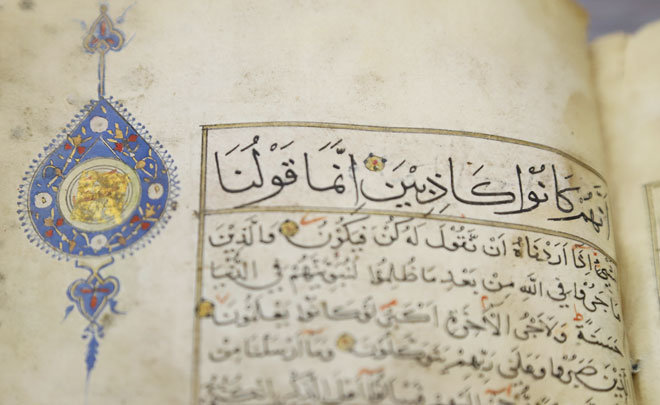 أَنَّهُمْ كَانُوا كَاذِبِينَ إِنَّمَا قَوْلُنَا
لِشَيْءٍ إِذَا أَرَدْنَاهُ أَنْ نَقُولَ لَهُ كُنْ فَيَكُونُ وَالَّذِينَ
هَاجَرُوا فِي اللَّهِ مِنْ بَعْدِ مَا ظُلِمُوا لَنُبَوِّئَنَّهُمْ فِي الدُّنْيَا
حَسَنَةً وَلَأَجْرُ الْآخِرَةِ أَكْبَرُ لَوْ كَانُوا يَعْلَمُونَ
الَّذِينَ صَبَرُوا وَعَلَى رَبِّهِمْ يَتَوَكَّلُونَ وَمَا أَرْسَلْنَا مِنْ